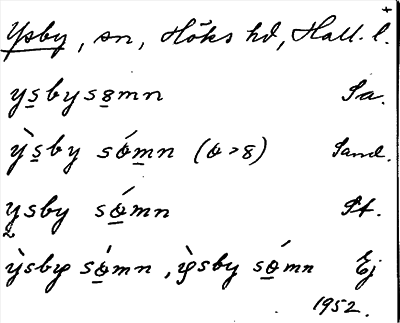 Ysby, sn, Höks hd, Hall. l.
ysbysɞmn Sa.
ỳsby só̱mn (o > 8) Sand.
ysby só̱mn St.
ỳsby só̱mn, ỳsby só̱mn Ej
1952.